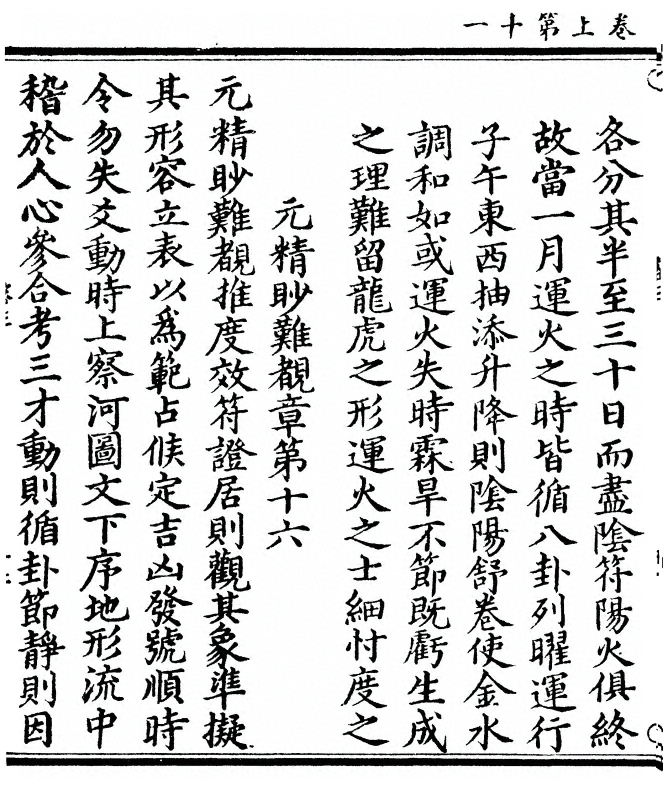 卷上第十一
各分其半至三十日而盡陰符陽火俱終
故當一月運火之時皆循八卦列曜運行
子午東西抽添升降則陰陽舒卷使金水
調和如或運火失時霖旱不節既虧生成
之理難留龍虎之形運火之士細忖度之
元精眇難覩章第十六
元精眇難覩推度效符證居則觀其象準擬
其形容立表以爲範占候定吉凶發號順時
令勿失爻動時上察河圖文下序地形流中
稽於人心參合考三才動則循卦節靜則因